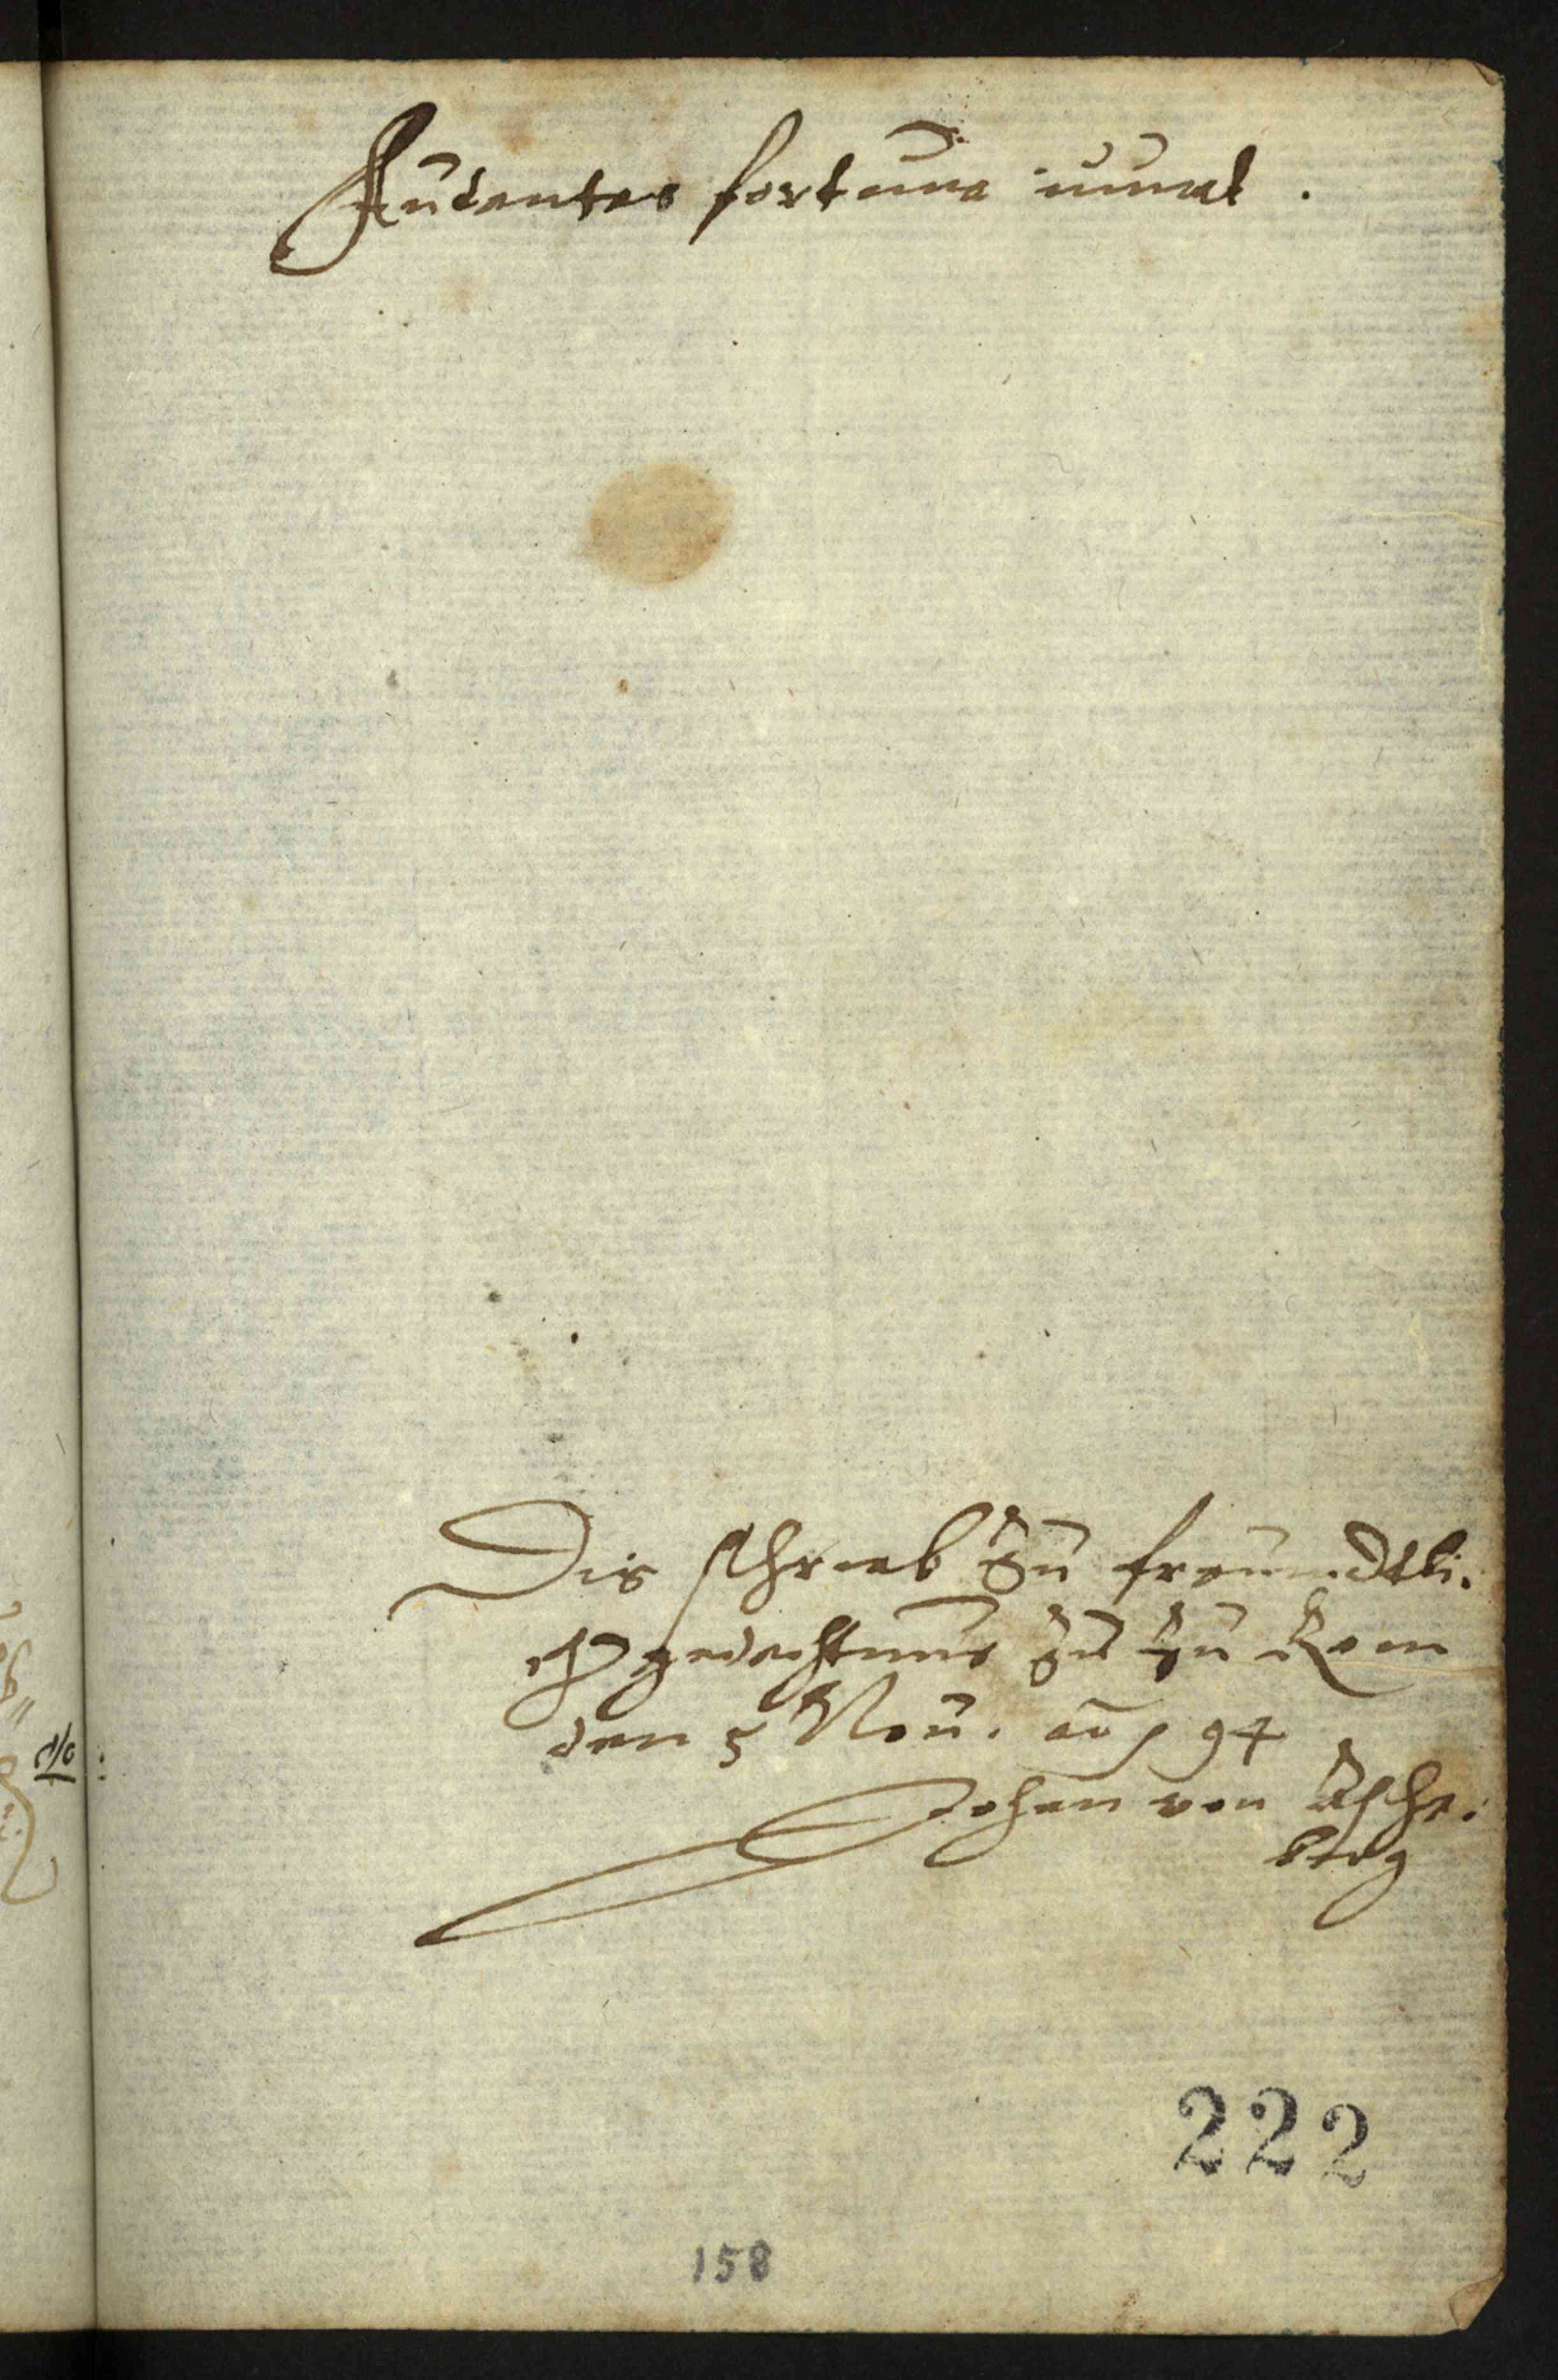 Audentes fortuna iuuat .
Dis schreib zu freundtli.
cher gedechtnus zu zu Rom
den 5 Nou. ao 94
Johan von Asche.
berg
222
158